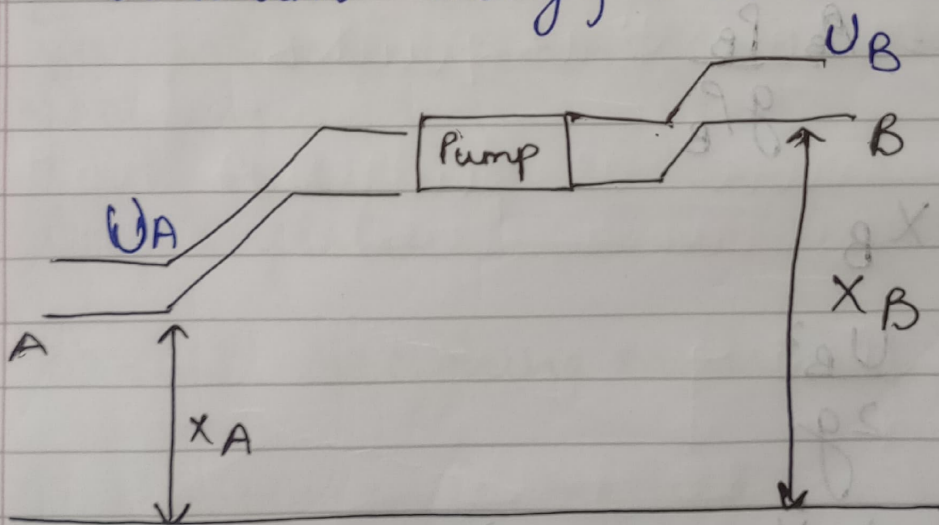 U B
Pump
B
UA
X B
A
X A